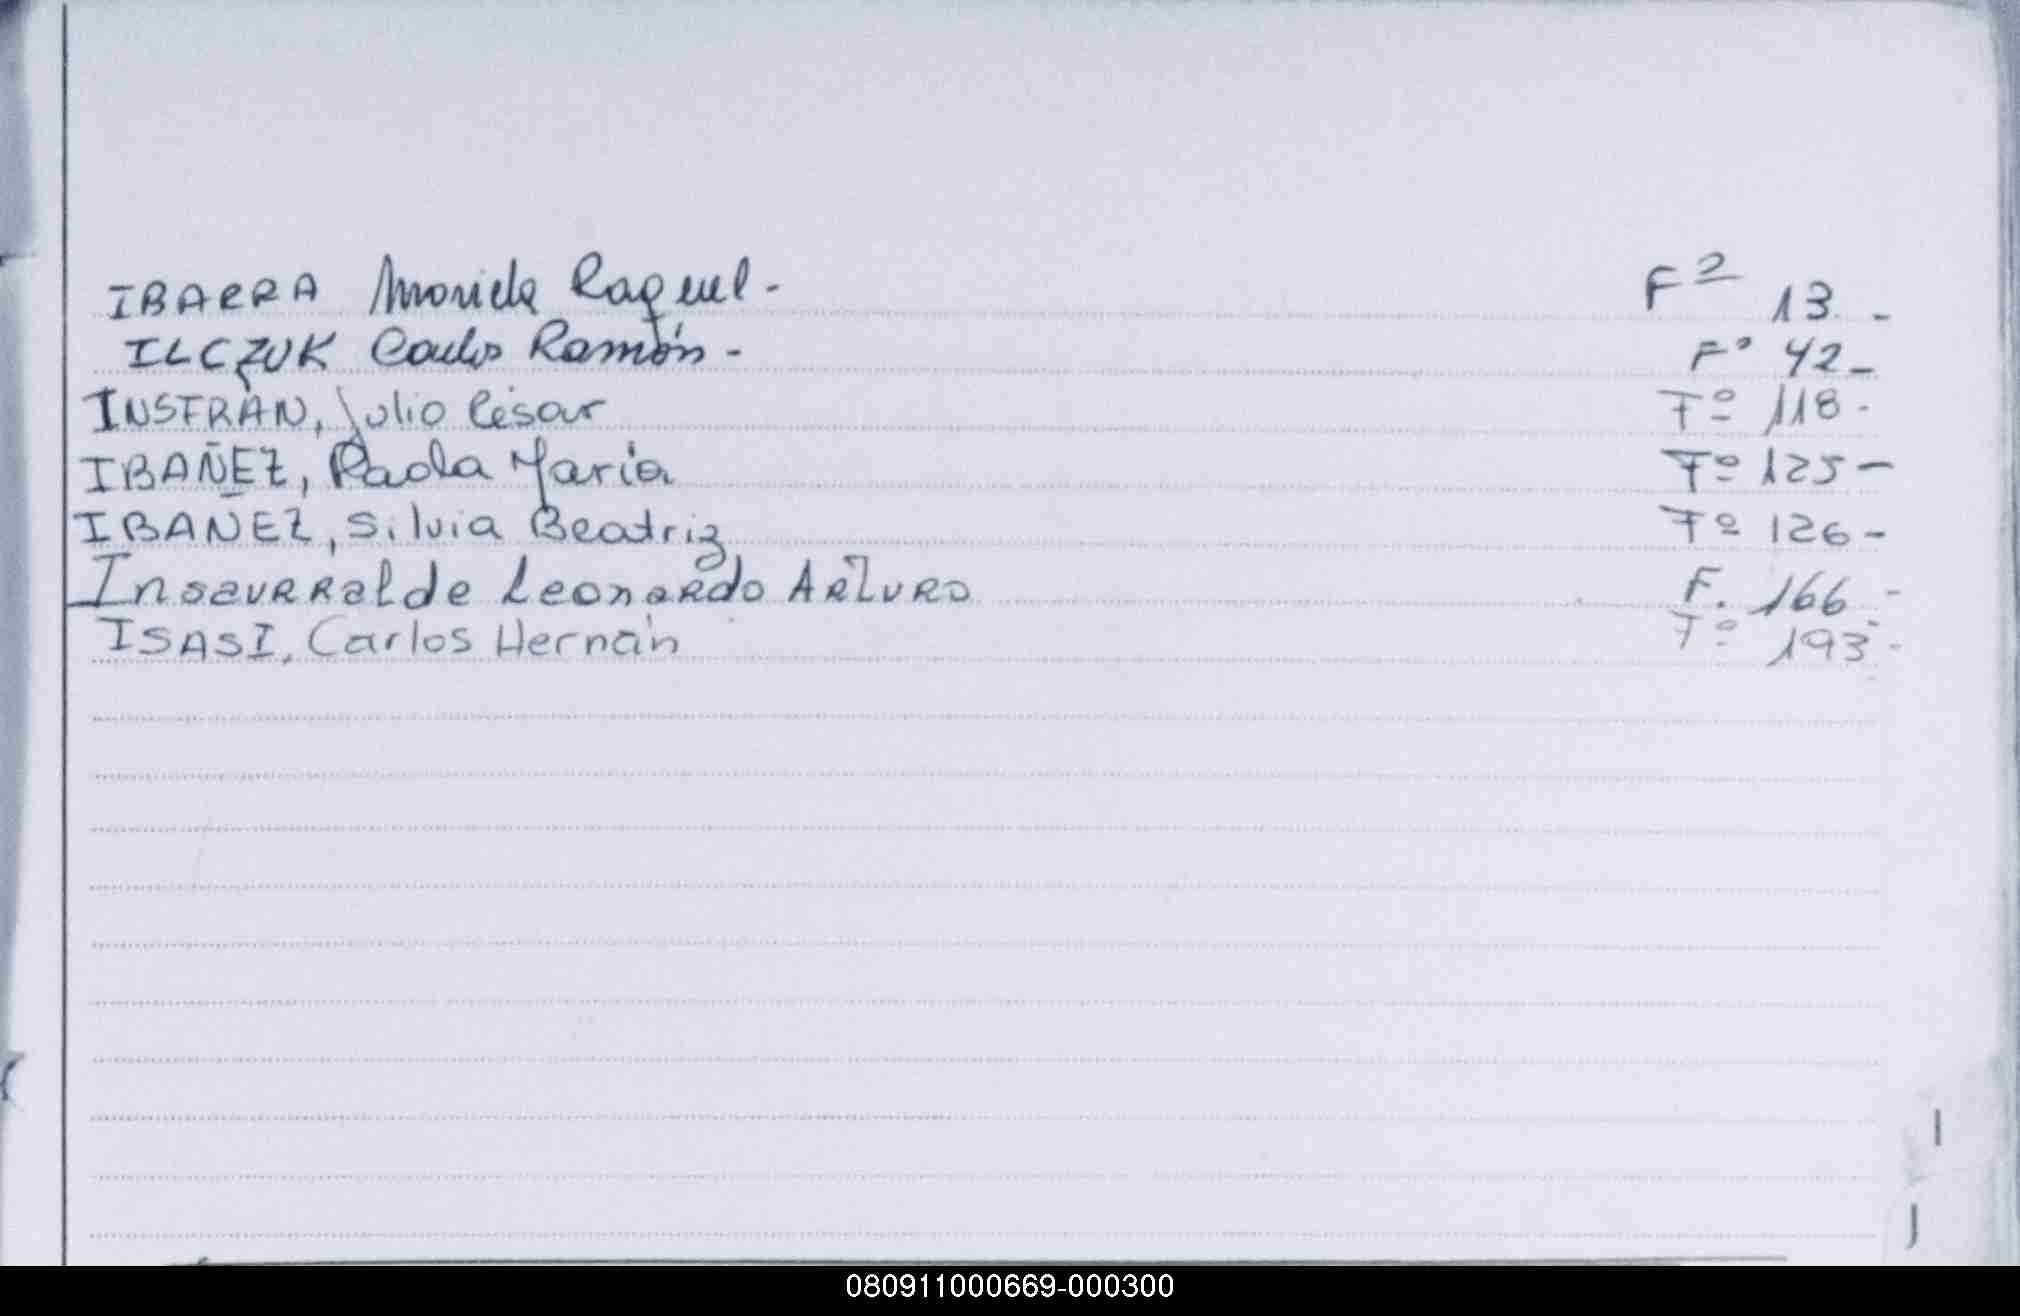 IBARRA Mariela Raquel - Fº 13. -
ILCZUK Carlos Ramón - Fº 42 -
INSFRÁN, Julio César Fº 118 -
IBAÑEZ, Paola María Fº 125 -
IBAÑEZ, Silvia Beatriz Fº 126 -
Insaurralde Leonardo Arturo F. 166 -
ISASI, Carlos Hernán Fº 193 -
I
J
080911000669-000300